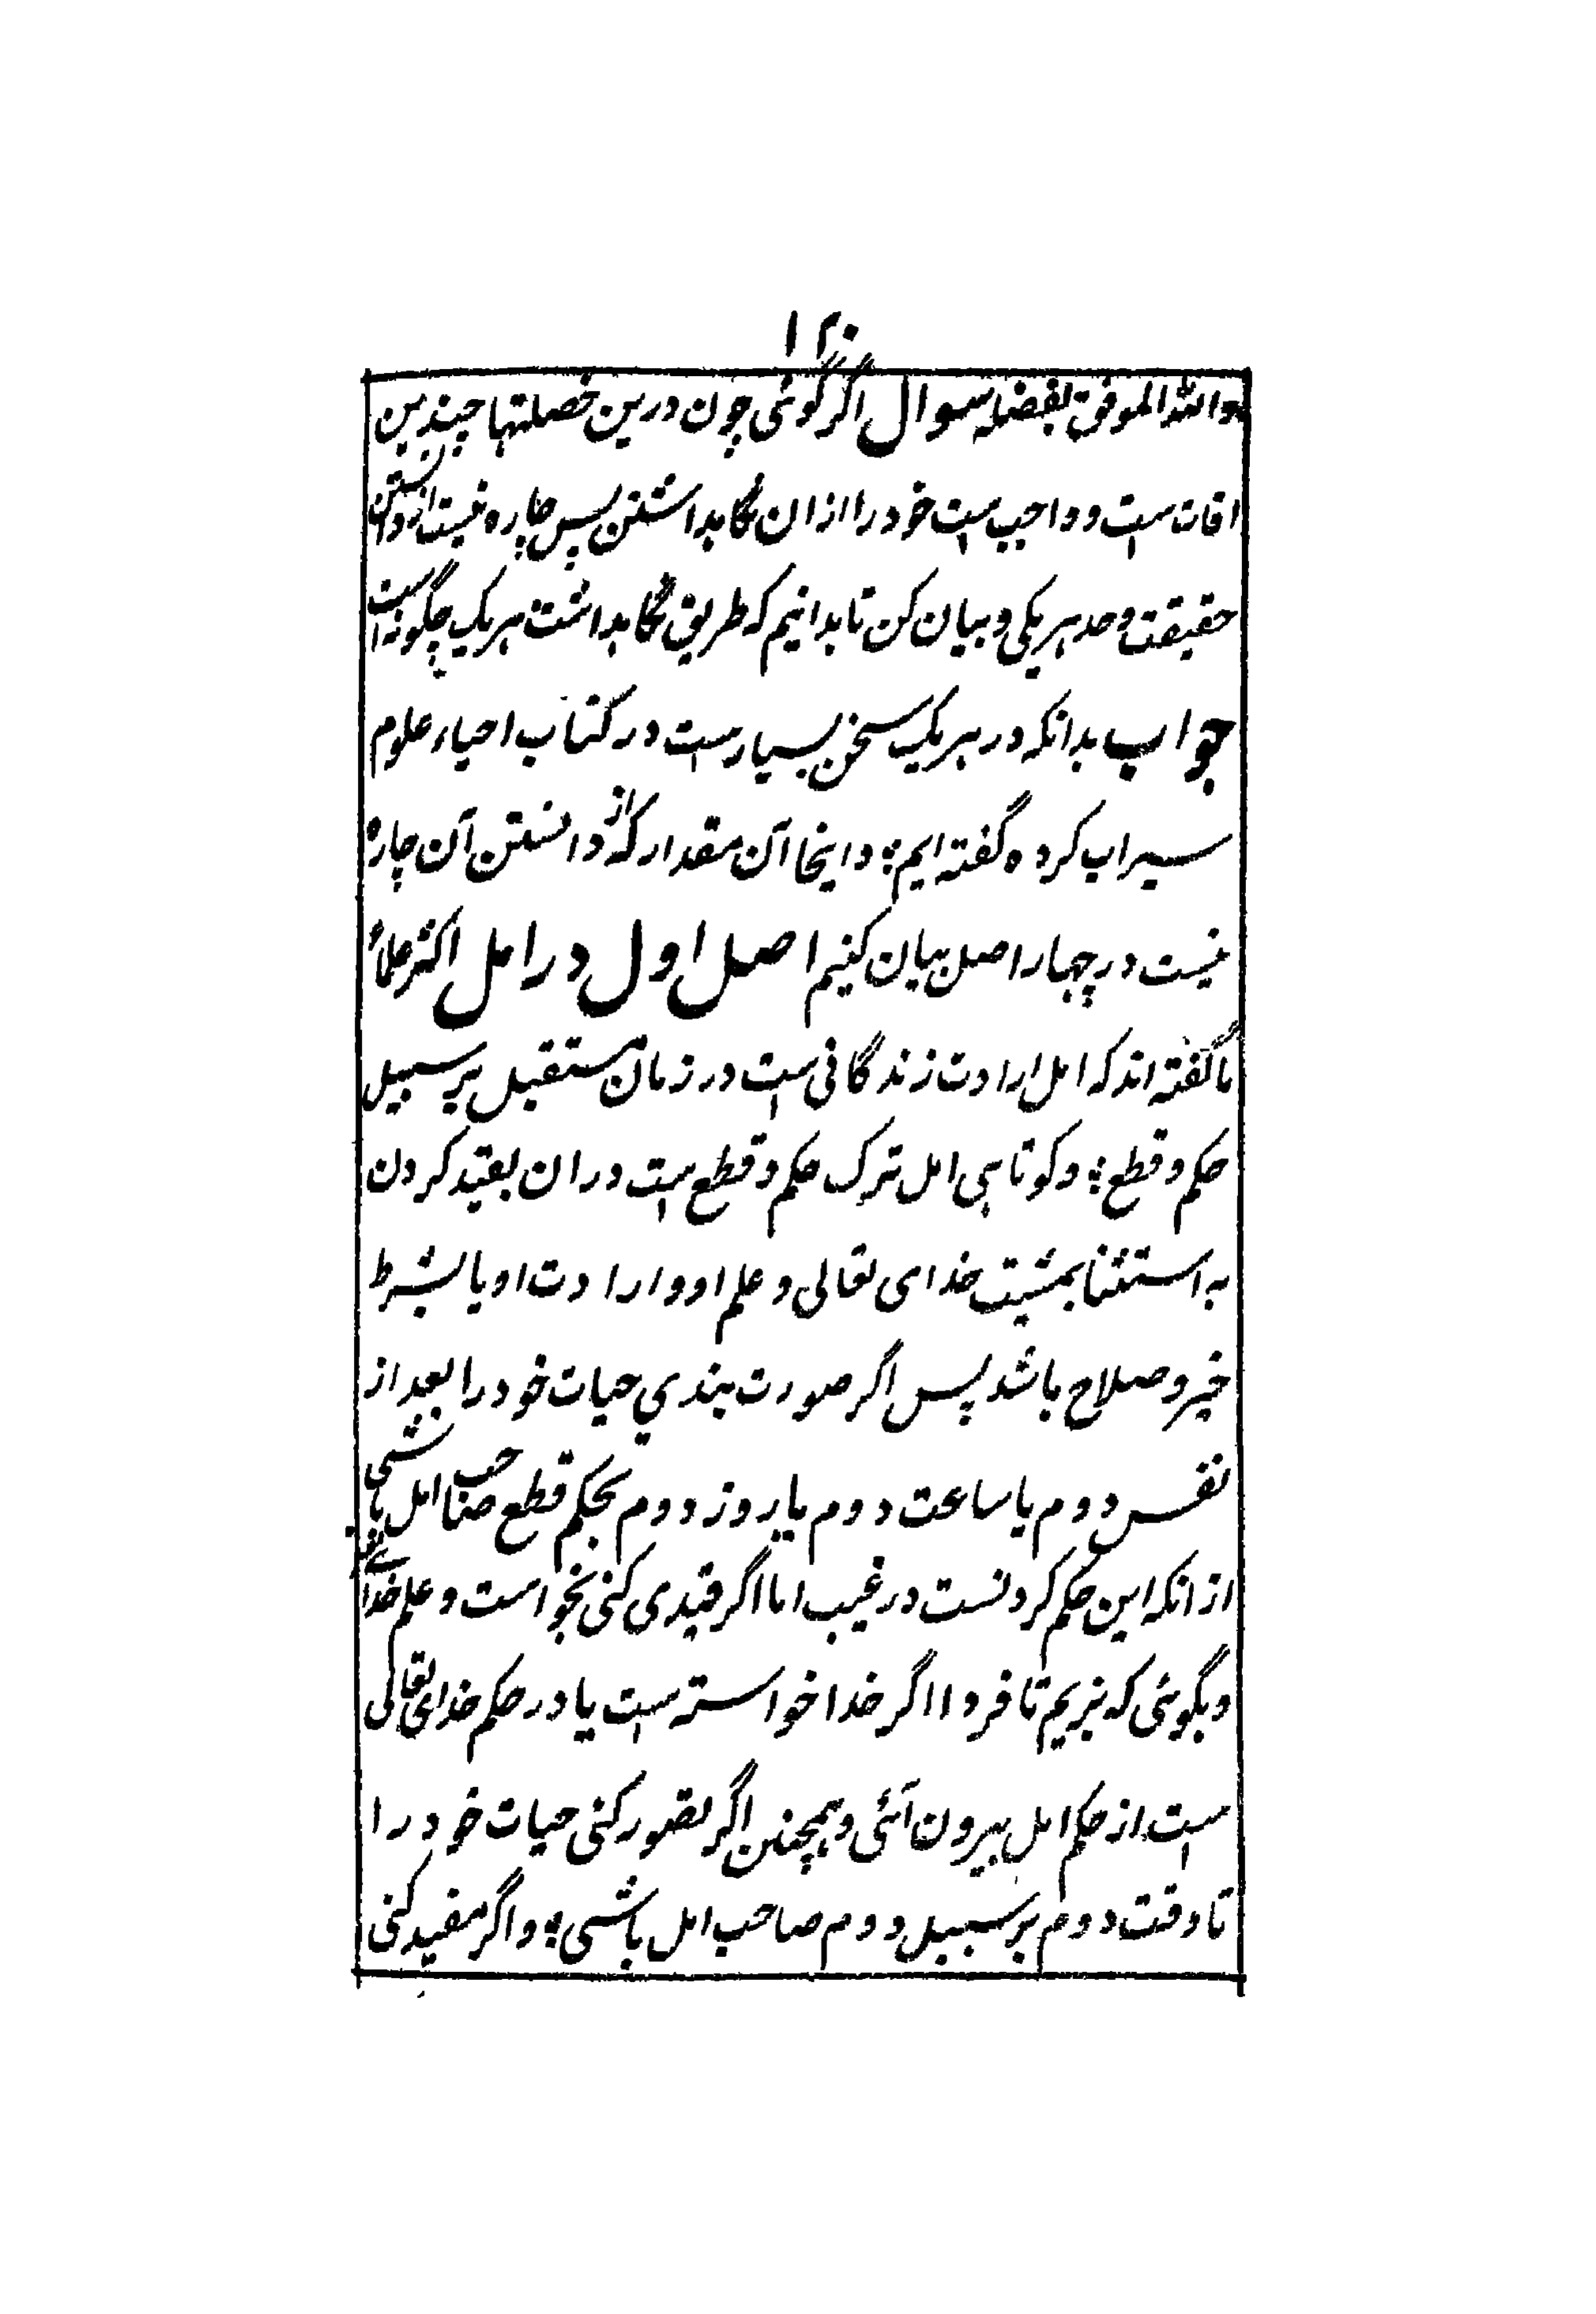 ۱۲۰
والله الموفق بفضله سوال اگر گوئی چون درین خصلتها چندین
افات ست و واجب ست خود را ازان نگاہداشتن پس چارہ نیست از دانستن
حقیقت و حد ہر یکی و بیان کن تا بدانیم کہ طریق نگاہداشت ہر یک چگونہ است
جواب بدانکہ در ہر یک سخن بسیارست در کتاب احیاء علوم
سیراب کردہ گفتہ ایم؛ و اینجا آن مقدار کہ از دانستن آن چارہ
نیست در چہار اصل بیان کنیم اصل اول در امل اکثر علماء
ما گفتہ اند کہ امل ارادت زندگانی ست در زمان مستقبل بر سبیل
حکم و قطع؛ و کوتاہی امل ترک حکم و قطع ست دران بقید کردن
بہ استثنا بمشیت خدای تعالی و علم او و ارادت او یا بشرط
خیر و صلاح باشد پس اگر صورت بندي حیات خود را بعد از
نفس دوم یا ساعت دوم یا روز دوم بحکم قطع صاحب امل باشی
از انکہ این حکم کردنست در غیب اما اگر قیدی کنی بخواست و علم خدای
و بگوئی کہ بزیم تا فردا اگر خدا خواستہ ست یا در حکم خدای تعالی
است از حکم امل بیرون آئی و ہمچنن اگر تصور کنی حیات خود را
تا وقت دوم بر سبیل دوم صاحب امل باشی؛ و اگر مقید کنی